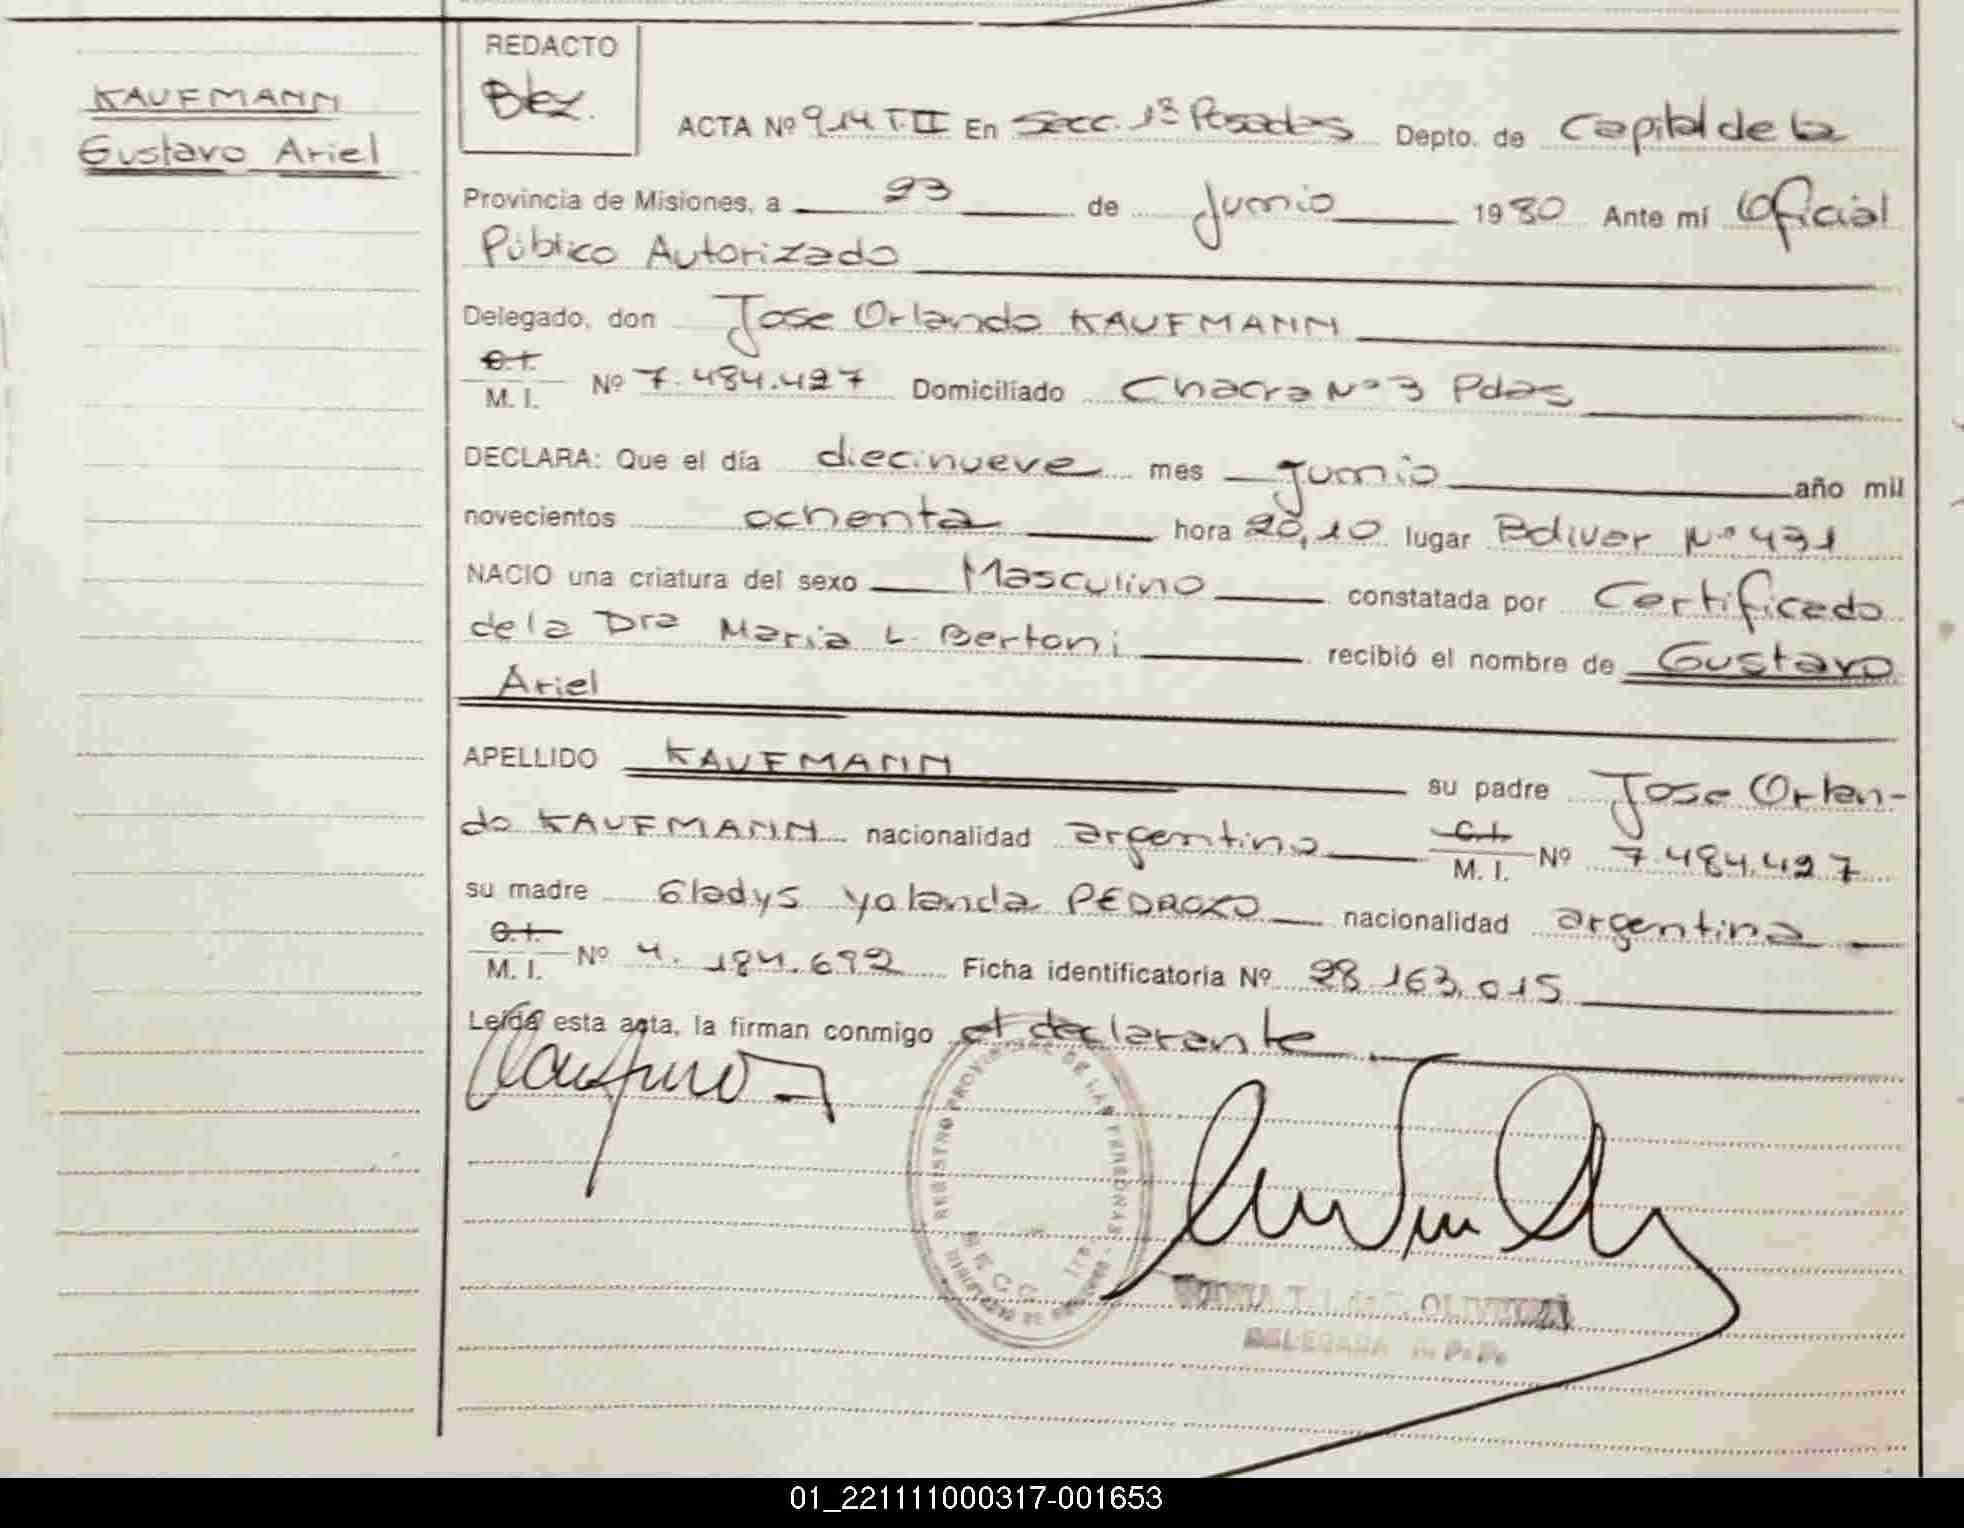 KAUFMANN
Gustavo Ariel
REDACTO
ACTA Nº 914 T.II En Secc. 1ª Posadas Depto. de Capital de la
Provincia de Misiones, a 23 de Junio 1980 Ante mí Oficial
Público Autorizado
Delegado, don Jose Orlando KAUFMANN
C.I.
M. I. Nº 7.484.497 Domiciliado Chacra Nº 3 Pdas
DECLARA: Que el día diecinueve mes Junio año mil
novecientos ochenta hora 20,10 lugar Bolivar Nº 431
NACIO una criatura del sexo Masculino constatada por Certificado
de la Dra Maria L. Bertoni recibió el nombre de Gustavo
Ariel
APELLIDO KAUFMANN su padre Jose Orlan-
do KAUFMANN nacionalidad argentino C.I.
M. I. Nº 7.484.497
su madre Gladys Yolanda PEDROZO nacionalidad argentina
C.I.
M. I. Nº 4.184.692 Ficha identificatoria Nº 28.163.015
Leída esta acta, la firman conmigo el declarante
REGISTRO PROVINCIAL DE LAS PERSONAS
MINISTERIO DE GOBIERNO
OLIVEIRA
DELEGADA
01_221111000317-001653